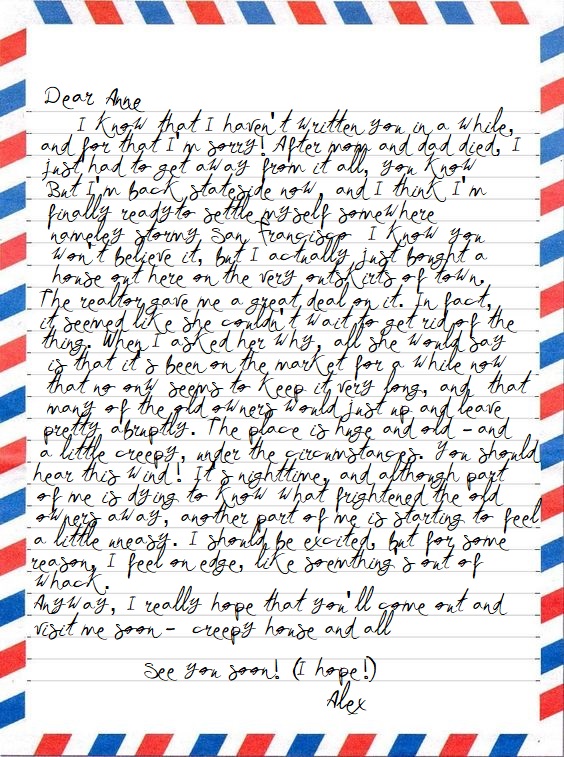 Dear Anne
I know that I haven't written you in a while,
and for that I'm sorry! After mom and dad died, I
just had to get away from it all, you know
But I'm back stateside now, and I think I'm
finally ready to settle myself somewhere
nameley stormy San Francisco I know you
won't believe it, but I actually just bought a
house out here on the very outskirts of town.
The realtor gave me a great deal on it. In fact,
it seemed like she couldn't wait to get rid of the
thing. When I asked her why, all she would say
is that it's been on the market for a while now
that no onw seems to keep it very long, and that
many of the old owners would just up and leave
pretty abruptly. The place is huge and old - and
a little creepy, under the circumstances. You should
hear this wind! It's nighttime, and although part
of me is dying to know what frightened the old
owners away, another part of me is starting to feel
a little uneasy. I should be excited, but for some
reason, I feel on edge, like soemthing's out of
whack.
Anyway, I really hope that you'll come out and
visit me soon - creepy house and all
See you soon! (I hope!)
Alex